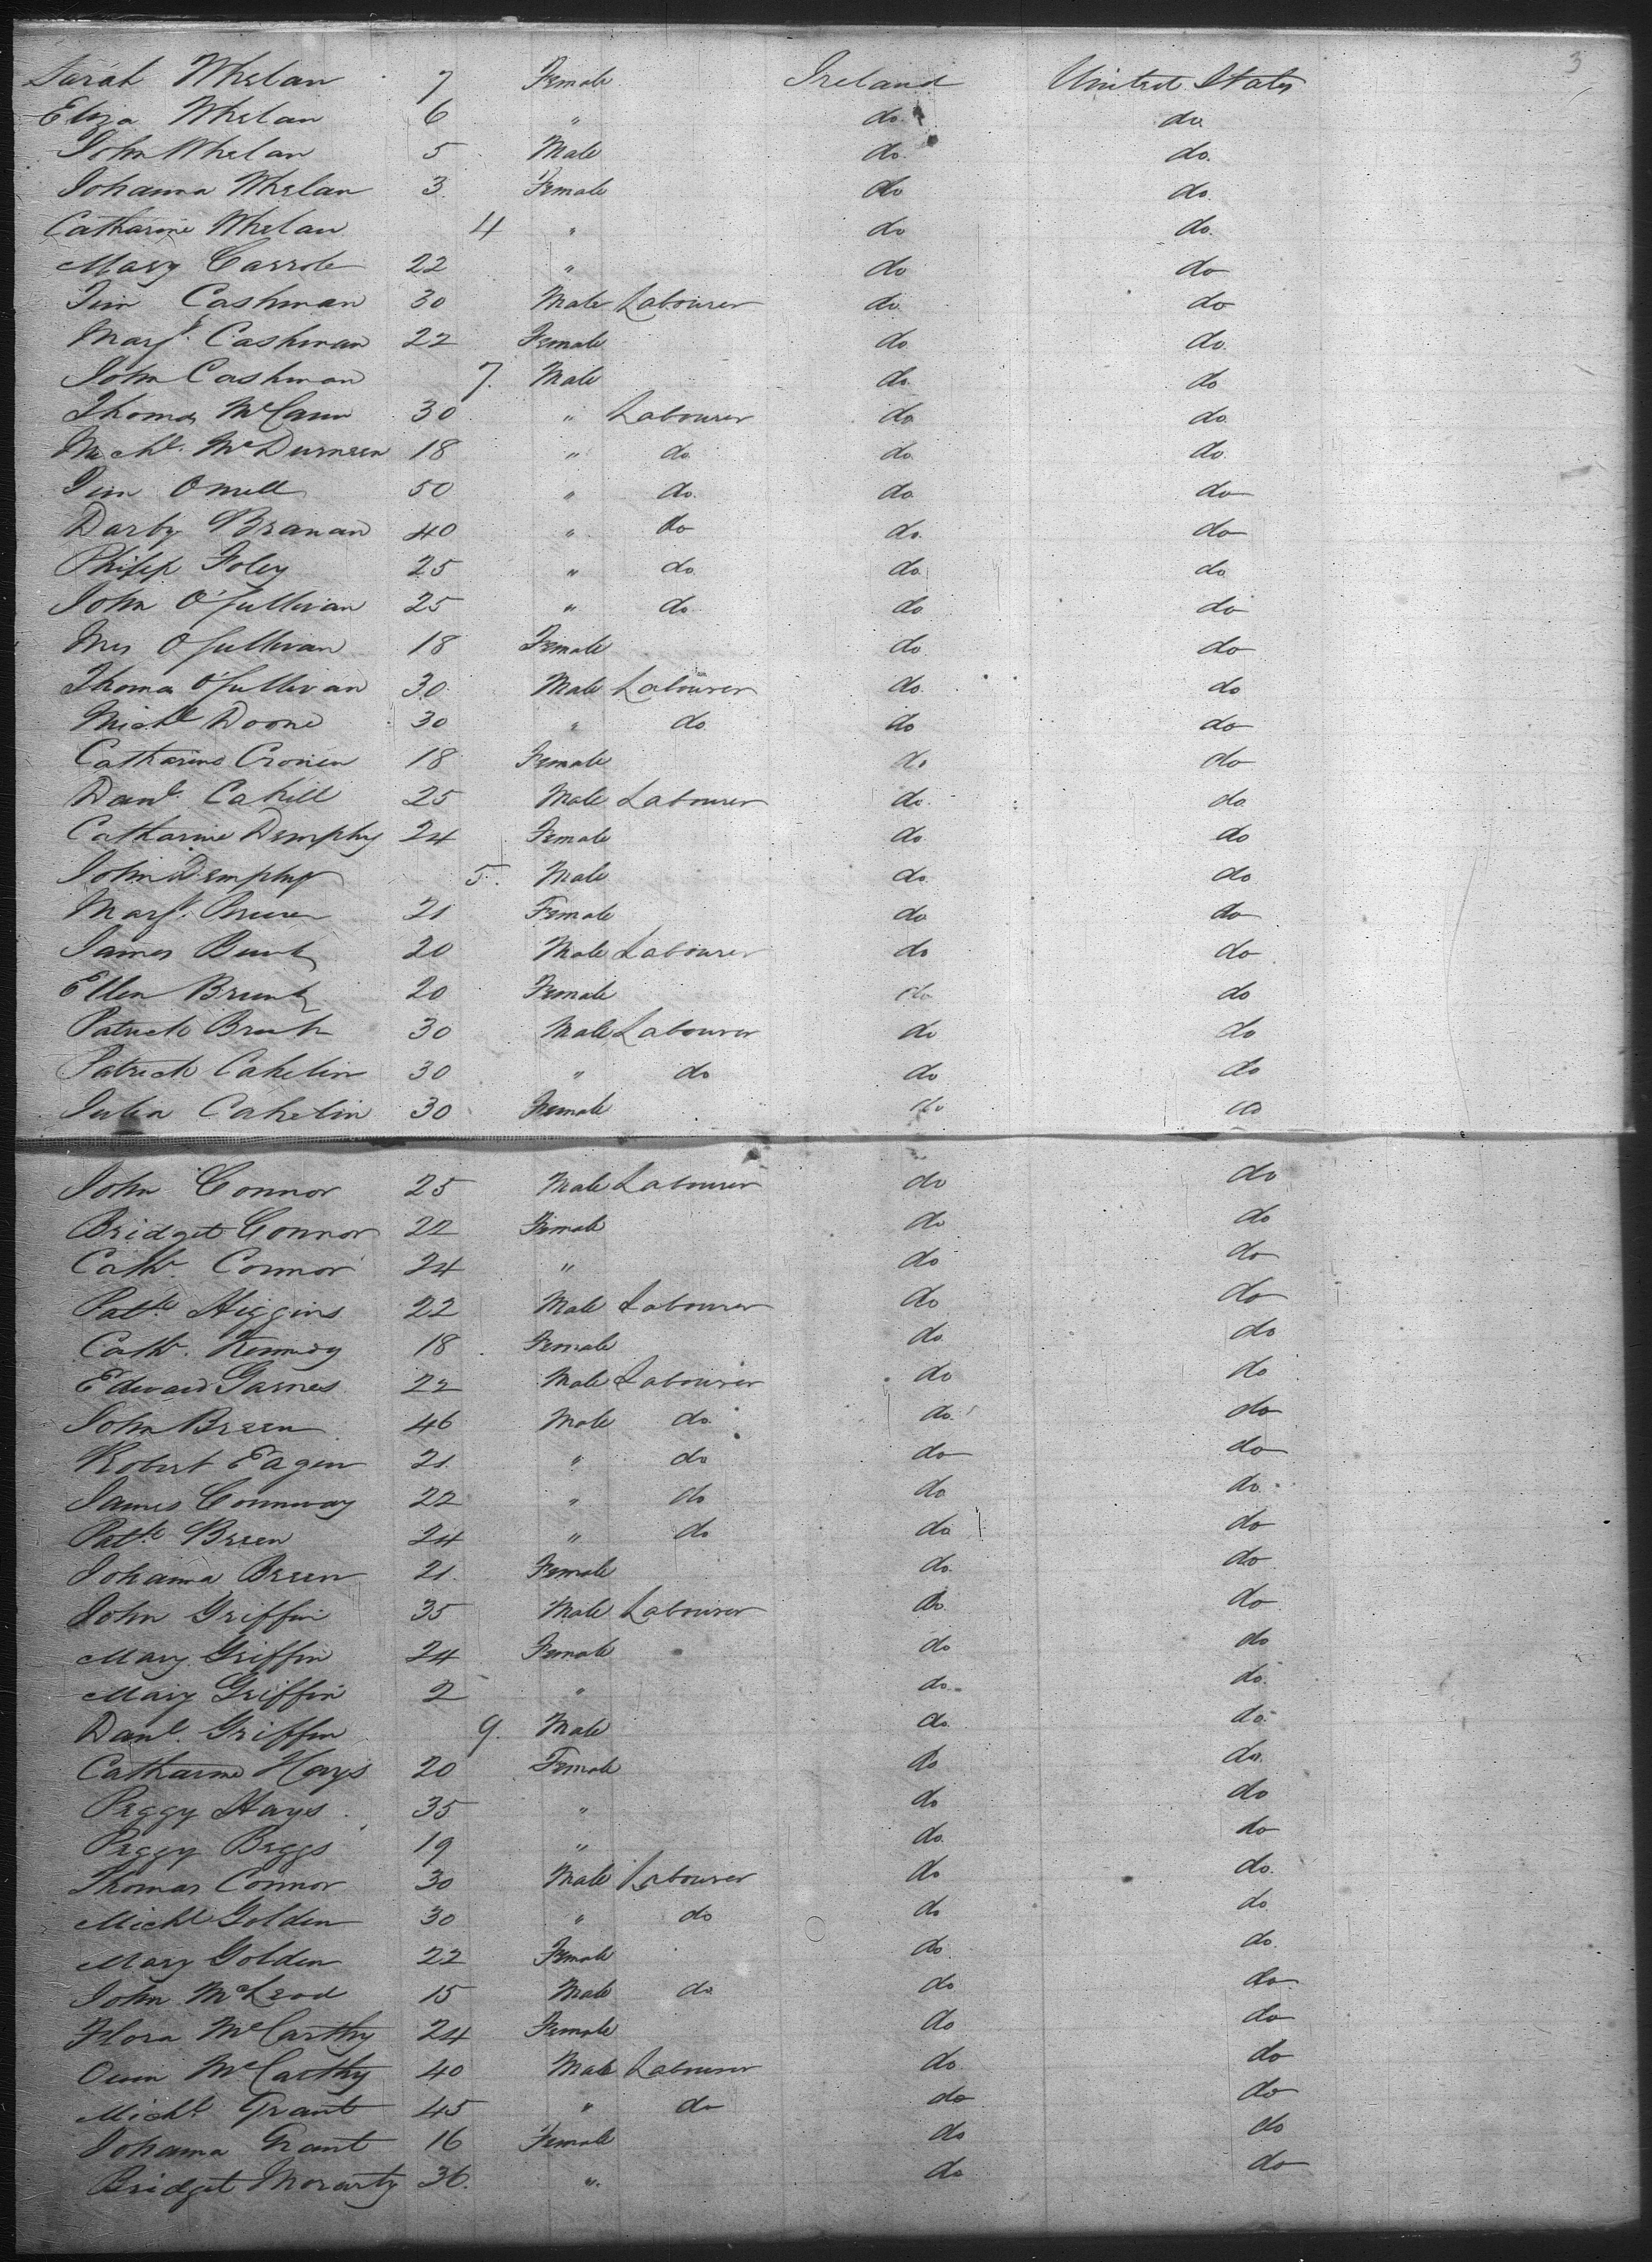 3
Sarah Whelan 7 Female Ireland United States
Eliza Whelan 6 " do. do
John Whelan 5 Male do. do.
Johanna Whelan 3 Female do do.
Catharine Whelan 4 " do do.
Mary Carrole 22 " do do
Tim Cashman 30 Male Labourer do do
Margt. Cashman 22 Female do do.
John Cashman 7. Male do. do
Thomas McCann 30 " Labourer do do
Michl. 18 " do do. do.
Tim Oneill 50 " do. do do
Darby Branan 40 " do do. do
Philip Foley 25 " do do do
John O'Sullivan 25 " do do do
Mrs O'Sullivan 18 Female do do
Thomas O'Sullivan 30 Male Labourer do. do
Michl Doone 30 " do do do
Catharine Cronin 18 Female do do
Danl. Cahill 25 Male Labourer do. do
Catharine Demphy 24 Female do. do
John Demphy 5. Male do. do
Margt. 21 Female do do
James 20 Male Labourer do do
Ellen 20 Female do do
Patrick 30 Male Labourer do do
Patrick Cahelin 30 " do do do
Julia Cahelin 30 Female do do
John Connor 25 Male Labourer do do
Bridget Connor 22 Female do do
Cathr. Connor 24 " do do
Patk Higgins 22 Male Labourer do do
Cathr. Kennedy 18 Female do. do
Edward Garnes 22 Male Labourer do do
John Breen 46 Male do. do. do
Robert Eagen 21 " do do do
James Connway 22 " do do do.
Patk Breen 24 " do do do
Johanna Breen 21. Female do. do
John Griffin 35 Male Labourer do. do
Mary Griffin 24 Female do do
Mary Griffin 2 " do. do.
Danl. Griffin 9. Male do. do.
Catharine Hays 20 Female do do.
Peggy Hays 35 " do do
Peggy Beggs 19 " do. do
Thomas Connor 30 Male Labourer do do.
Michl Golden 30 " do do do
Mary Golden 22 Female do. do.
John McLeod 15 Male do do do
Flora McCarthy 24 Female do do
Owin McCarthy 40 Male Labourer do do
Michl Grant 45 " do do do
Johanna Grant 16 Female do do
Bridget Moriarty 36. " do do